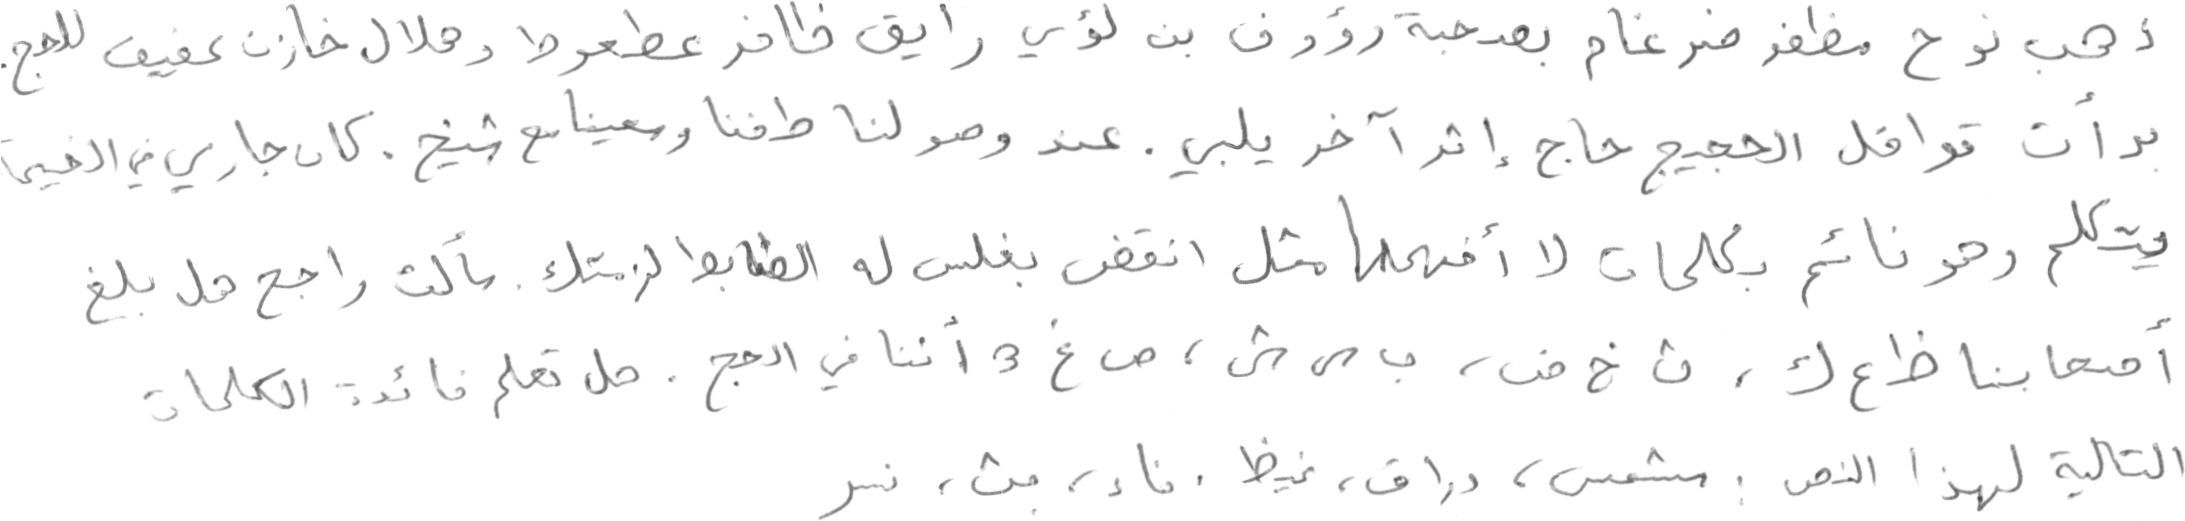 ذهب نوح مظفر ضرغام بصحبة رؤوف بن لؤي رايق ظافر عطعوط وهلال خازن عفيف للحج.
بدأت قوافل الحجيج حاج إثر آخر يلبي. عند وصولنا طفنا وسعينا مع شيخ. كان جاري في الخيمة
يتكلم وهو نائم بكلمات لا أفهمها مثل انقض بغلس له الضابط لزمتك. سألت راجح هل بلغ
أصحابنا ظ ع ك، ث خ ض، ب س ش، ص غ 3 أننا في الحج. هل تعلم فائدة الكلمات
التالية لهذا النص: مشمس، دراق، غيظ، ناء، بث، نسر